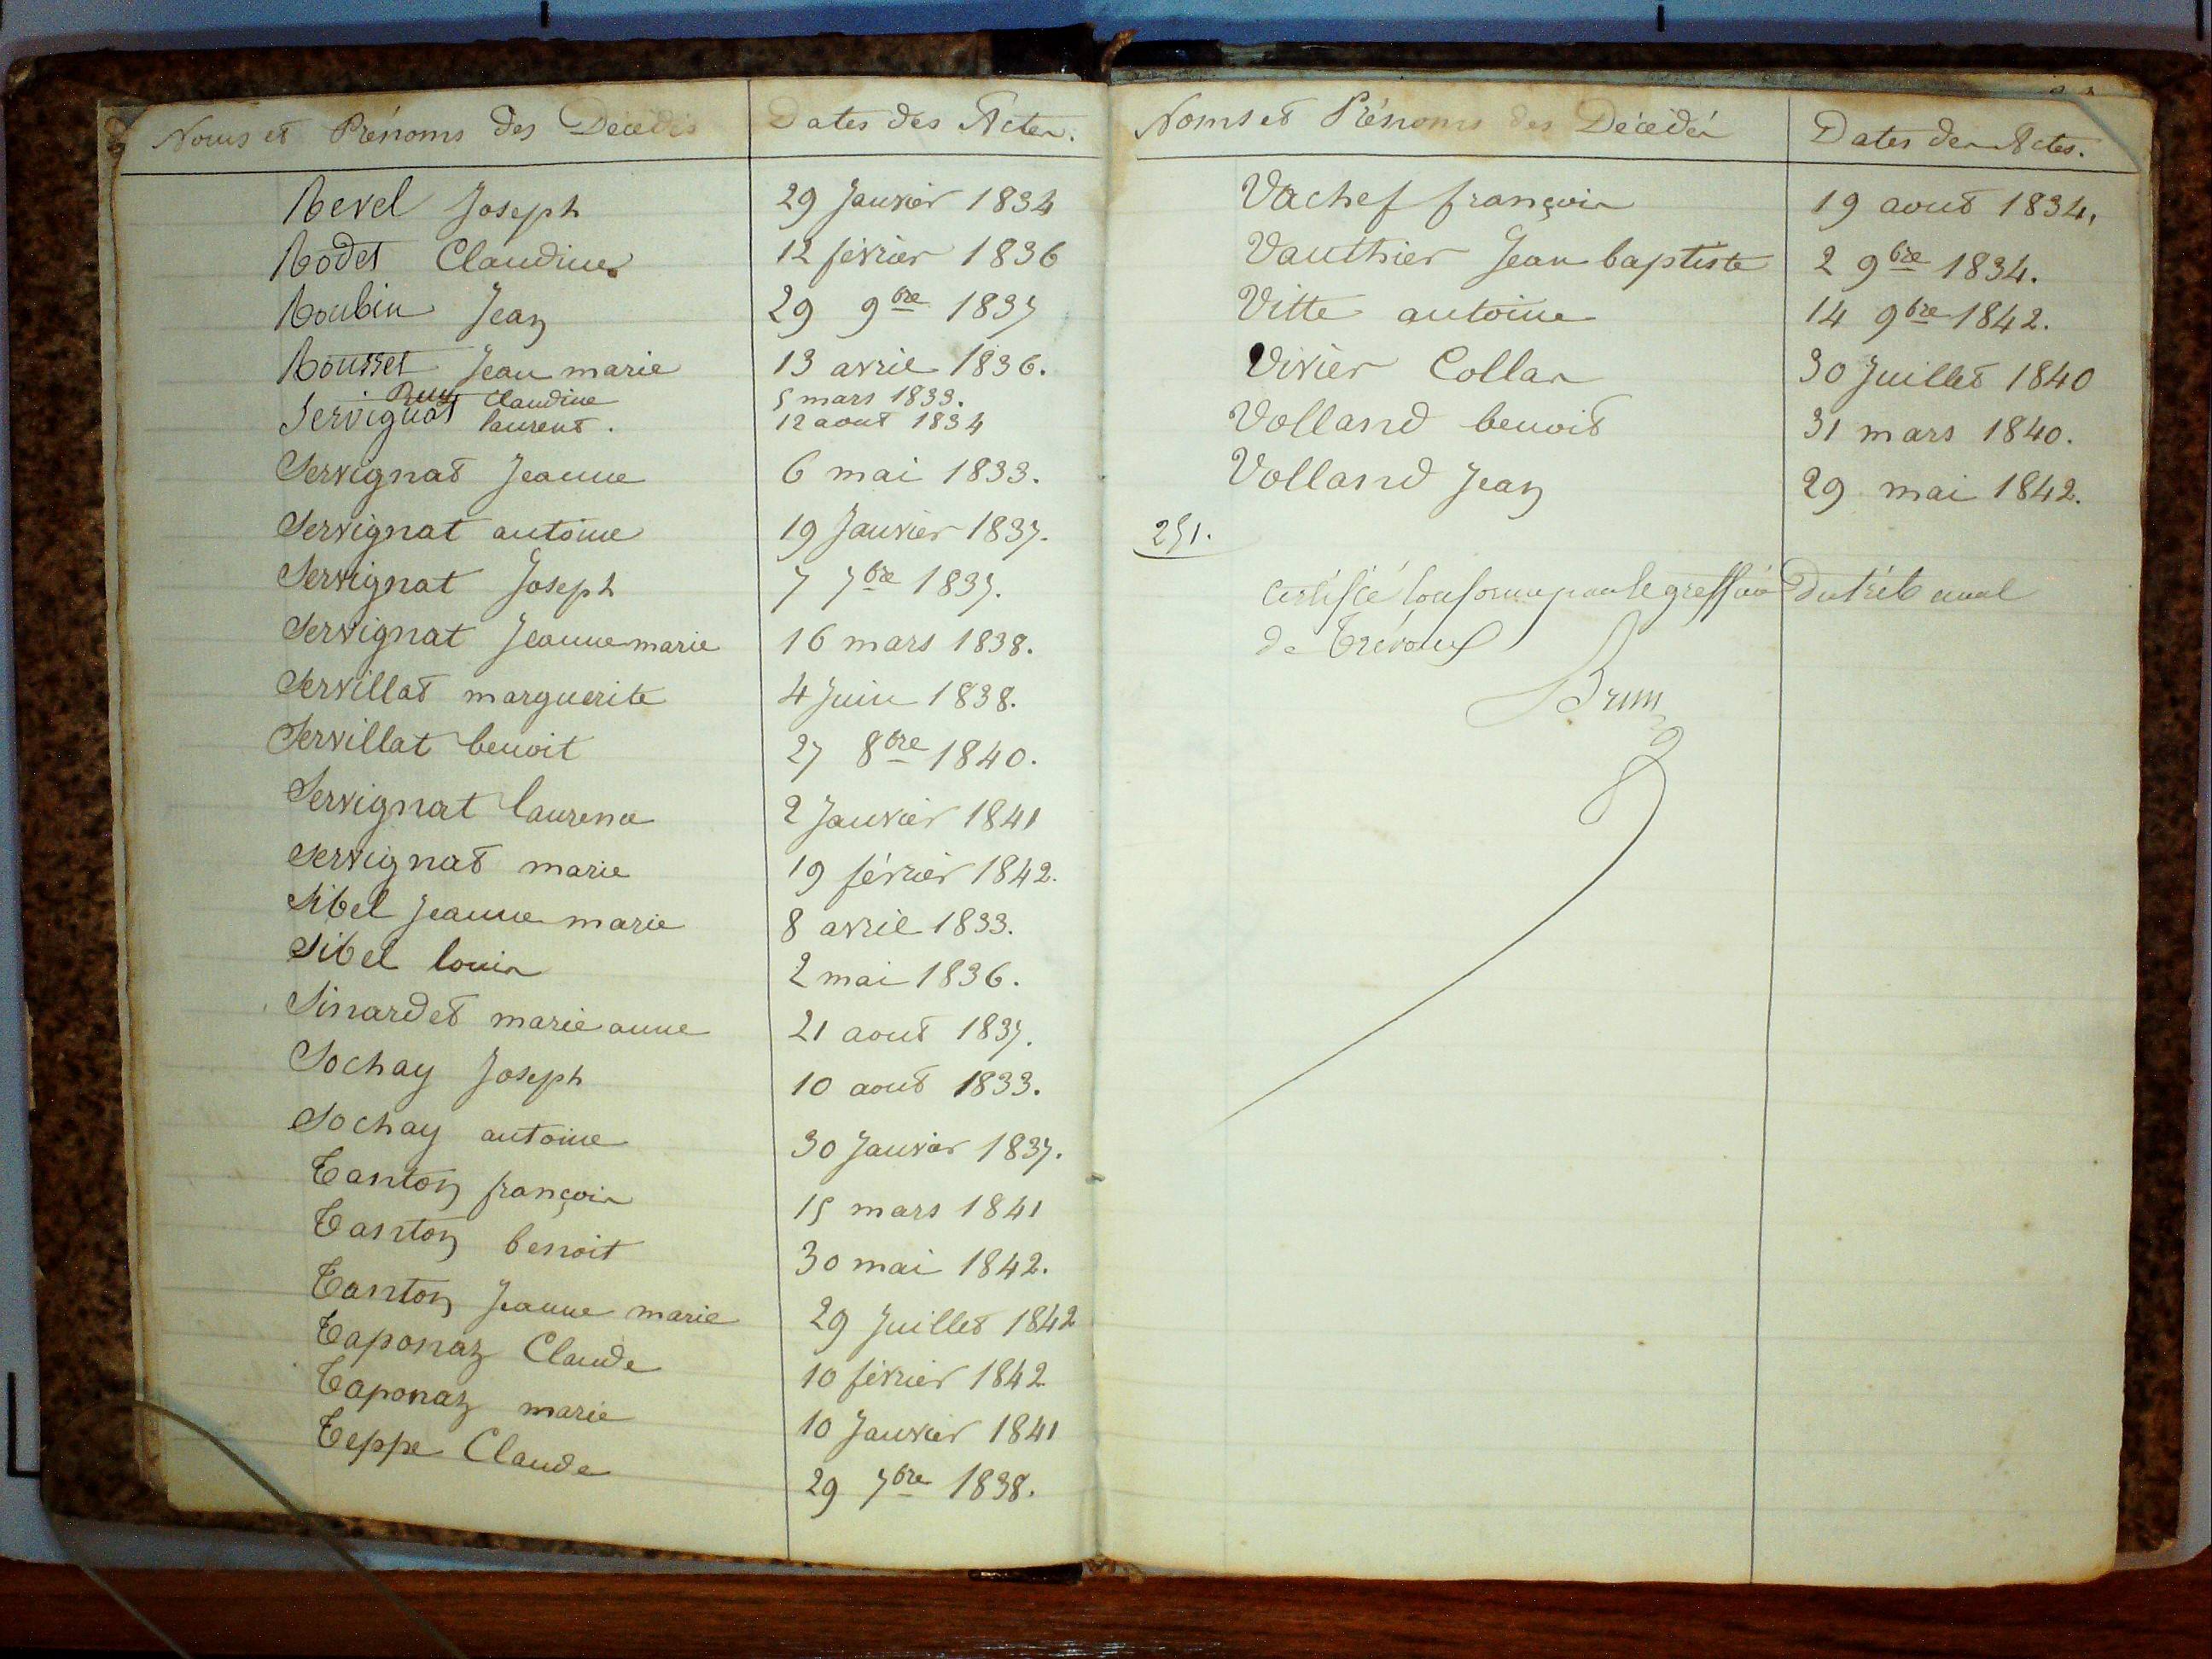 Noms et Prénoms des Décédés Dates des Actes.
Revel Joseph 29 Janvier 1834
Rodet Claudine 12 février 1836
Roubin Jean 29 9bre 1837
Rousset Jean marie 13 avril 1836.
Ruy Claudine 5 mars 1833.
Servignat laurent. 12 aout 1834
Servignat Jeanne 6 mai 1833.
Servignat antoine 19 Janvier 1837.
Servignat Joseph 7 7bre 1837.
Servignat Jeanne marie 16 mars 1838.
Servillat marguerite 4 Juin 1838.
Servillat benoit 27 8bre 1840.
Servignat laurence 2 Janvier 1841
Servignat marie 19 février 1842.
Sibel Jeanne marie 8 avril 1833.
Sibel louis 2 mai 1836.
Sinardet marie anne 21 aout 1837.
Sochay Joseph 10 aout 1833.
Sochay antoine 30 Janvier 1837.
Tanton françois 15 mars 1841
Tanton benoit 30 mai 1842.
Tanton Jeanne marie 29 Juillet 1842
Taponaz Claude 10 février 1842
Taponaz marie 10 Janvier 1841
Teppe Claude 29 7bre 1838.
Noms et Prénoms des Décédés Dates des Actes.
Vachef françois 19 aout 1834.
Vauthier Jean baptiste 2 9bre 1834.
Vitte antoine 14 9bre 1842.
Vivier Collas 30 Juillet 1840
Volland benoit 31 mars 1840.
Volland Jean 29 mai 1842.
251.
Certifié conforme par le greffier du tribunal
de Trévoux